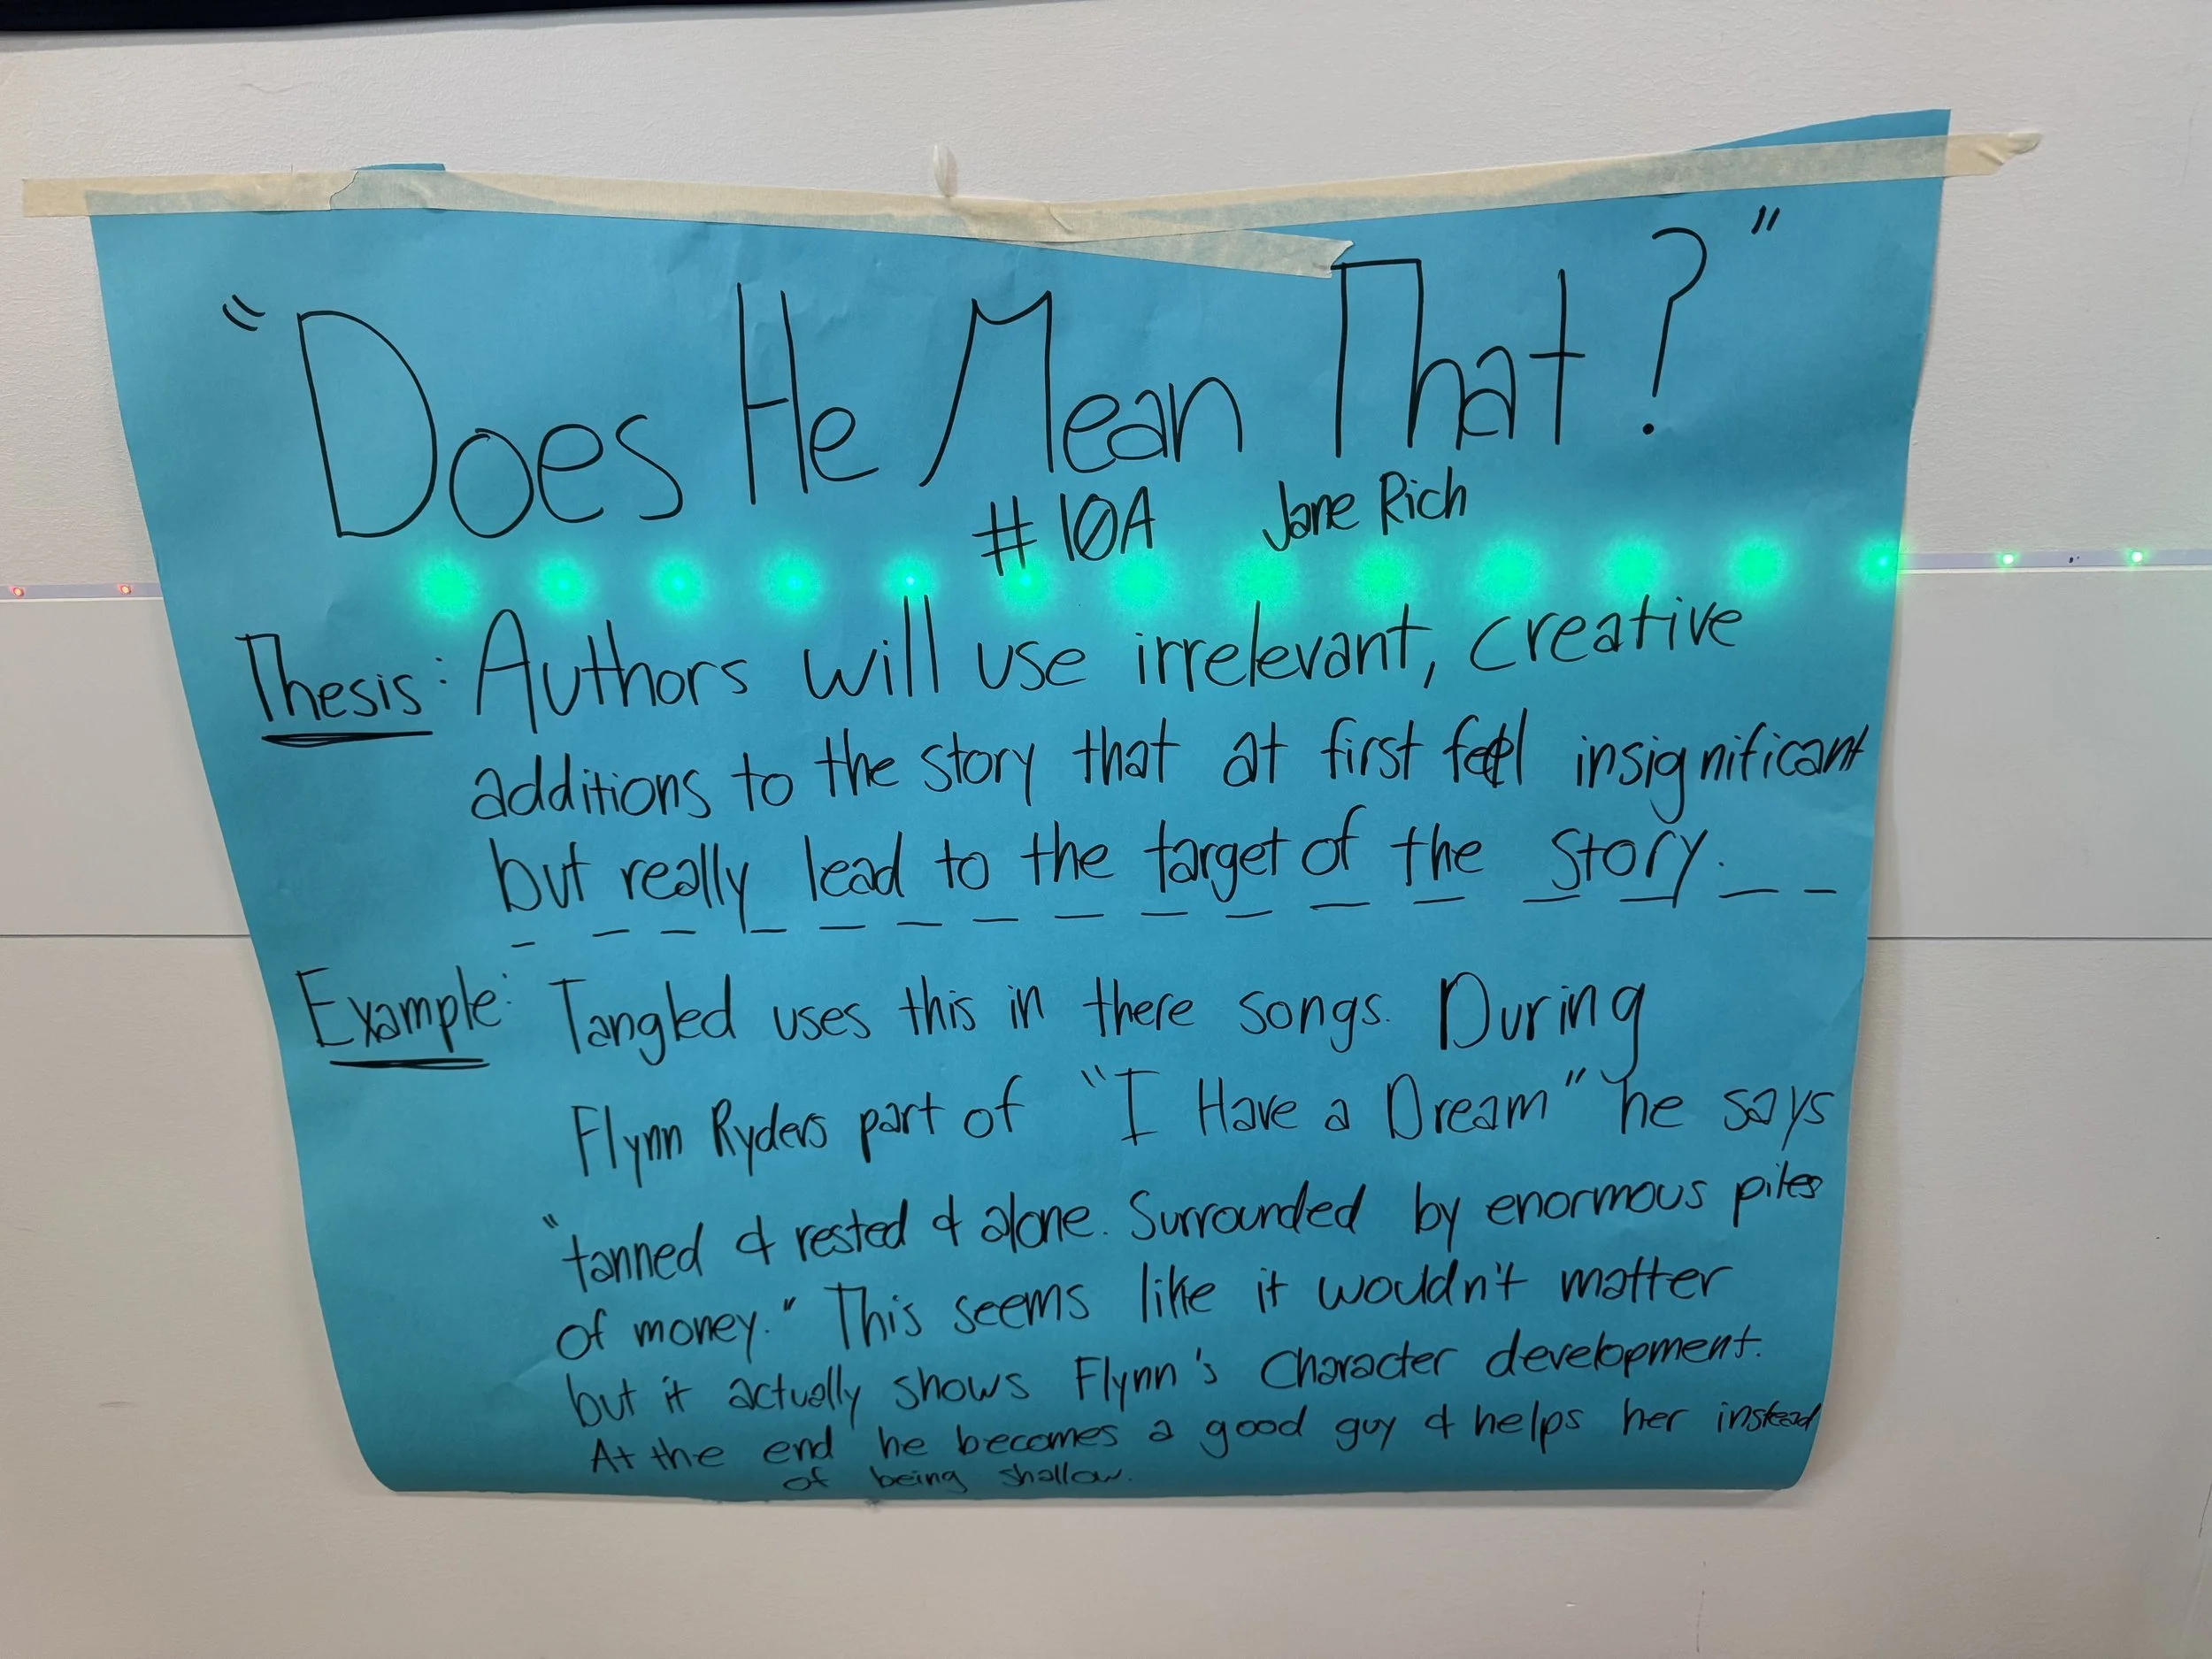 "Does He Mean That?"
#10A Jane Rich
Thesis: Authors will use irrelevant, creative
additions to the story that at first feel insignificant
but really lead to the target of the story.
Example: Tangled uses this in there songs. During
Flynn Ryders part of "I Have a Dream" he says
"tanned & rested & alone. Surrounded by enormous piles
of money." This seems like it wouldn't matter
but it actually shows Flynn's Character development.
At the end he becomes a good guy & helps her instead
of being shallow.